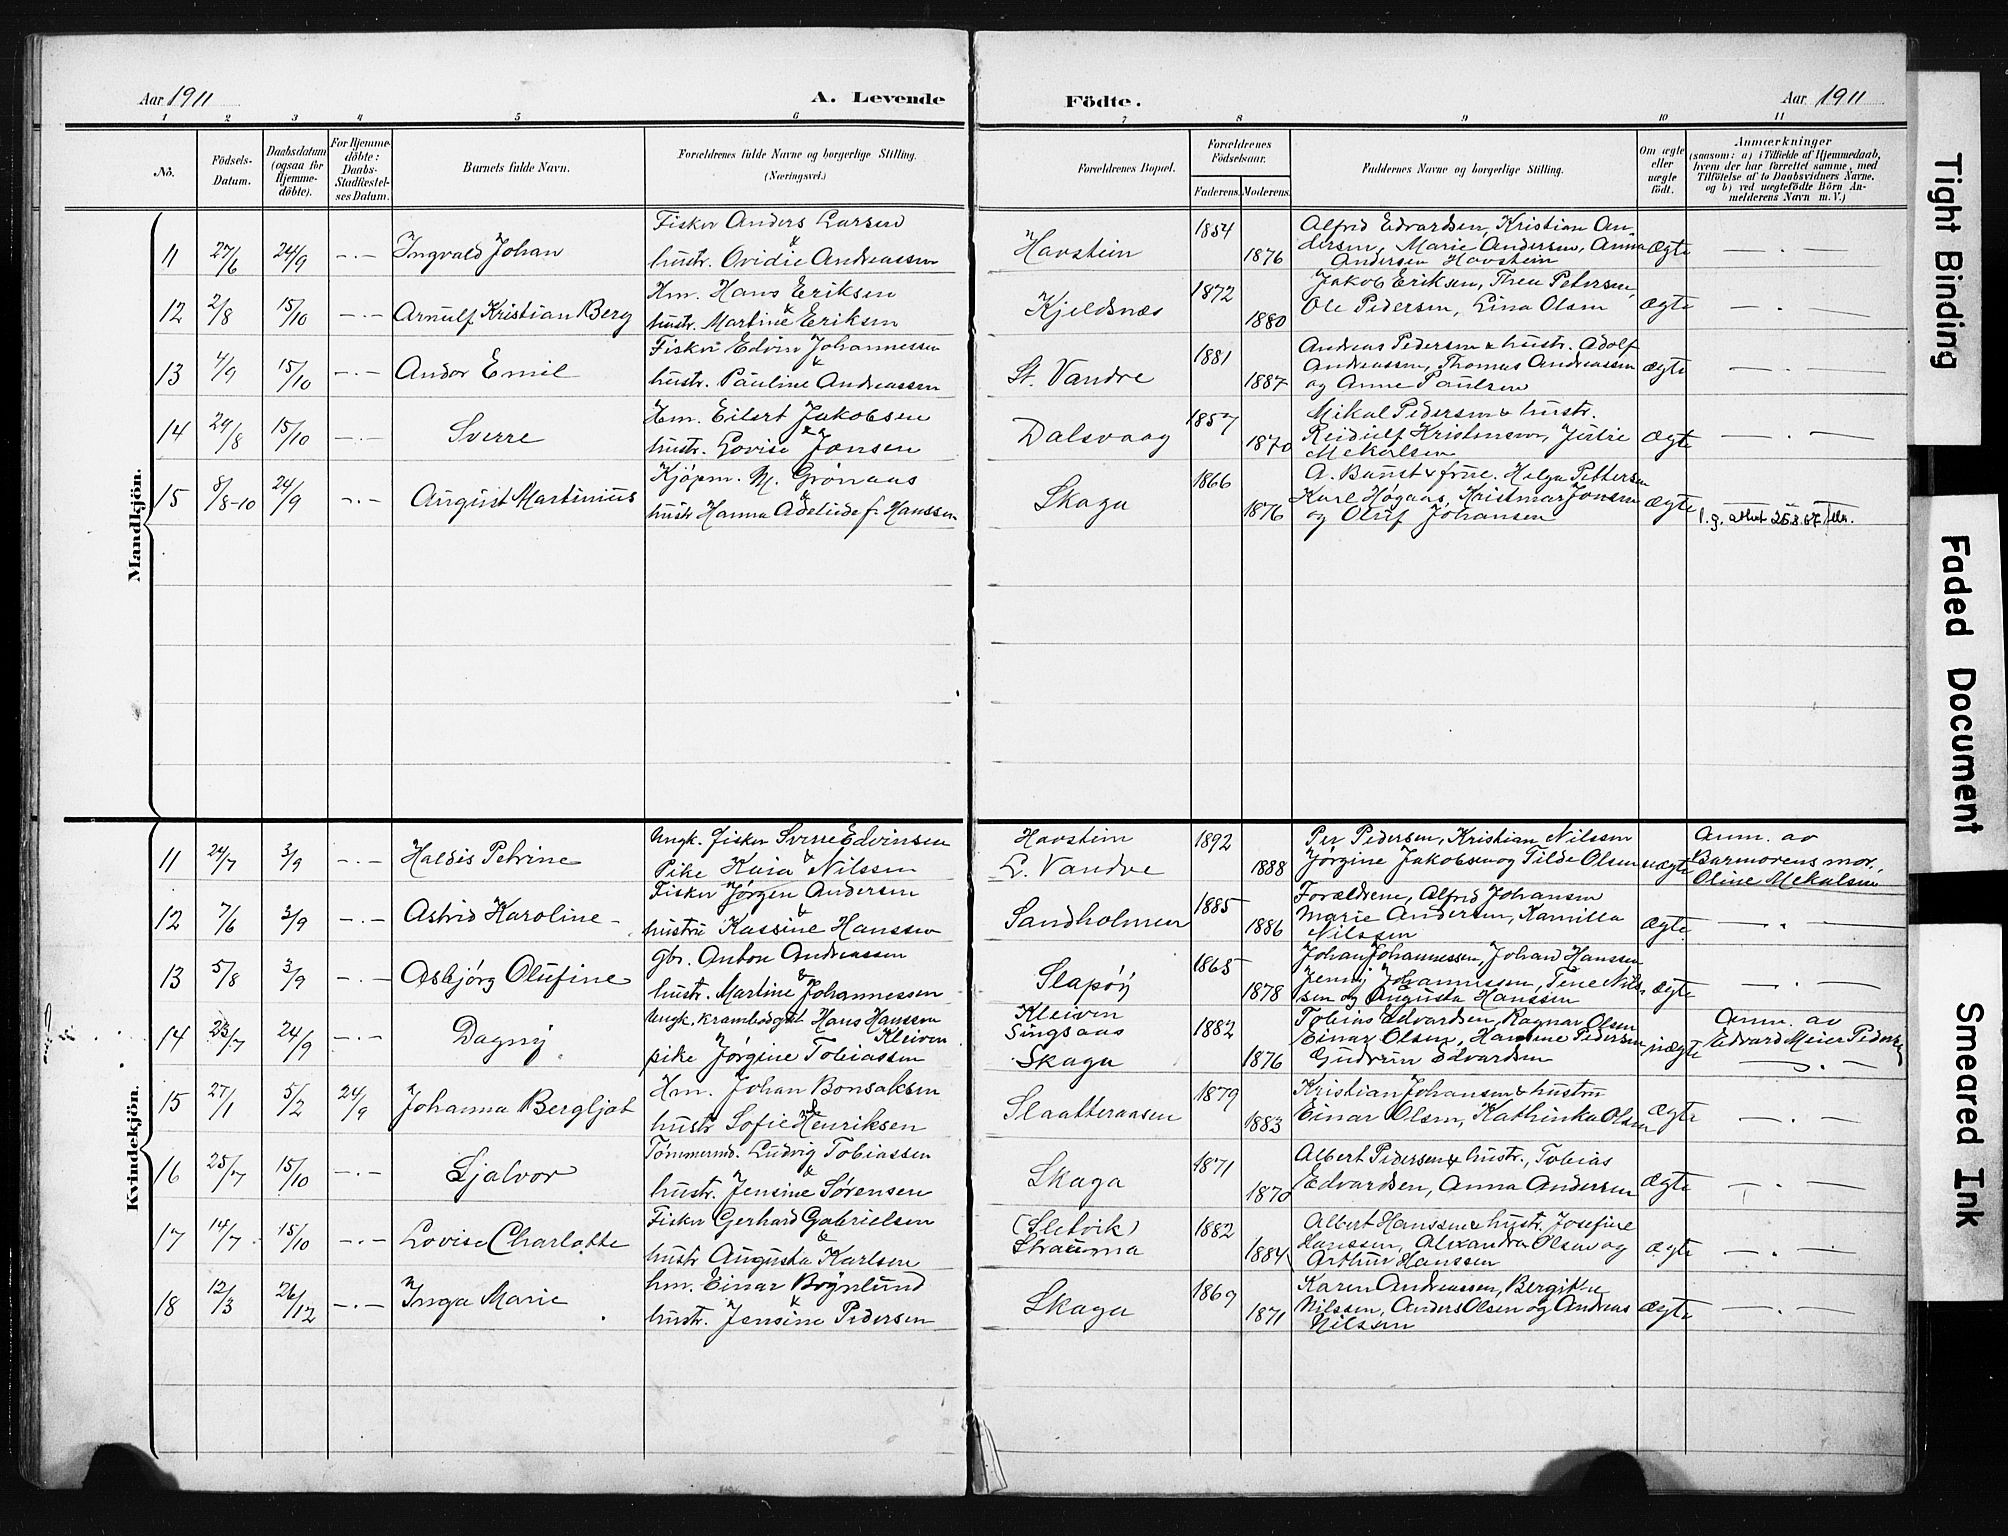 Aar 1911
A. Levende
Födte.
Aar 1911
1 2 3 4 5 6 7 8 9 10 11
Nö.
Födsels-Datum.
Daabsdatum (ogsaa for Hjemmedöbte).
For Hjemmedöbte: Daabs-Stadfæstelses Datum.
Barnets fulde Navn.
Forældrenes fulde Navne og borgerlige Stilling. (Næringsvei.)
Forældrenes Bopæl.
Forældrenes Födselsaar.
Faderens. Moderens.
Faddernes Navne og borgerlige Stilling.
Om ægte eller uægte födt.
Anmærkninger
(saasom: a) i Tilfælde af Hjemmedaab, hvem der har forrettet samme, med Tilföielse af to Daabsvidners Navne, og b) ved uægtefödte Börn Anmelderens Navn m. V.)
Mandkjön.
11 27/6 24/9 -.- Ingvald Johan
Fisker Anders Larsen
& hustr. Ovidie Andreassen
Havstein 1854 1876
Alfrid Edvardsen, Kristian An-
dersen, Marie Andersen, Anna
Andersen Havstein
Ægte — . —
12 2/8 15/10 -.- Arnulf Kristian Berg
Hm. Hans Eriksen
& hustr. Martine Eriksen
Kjeldsnæs 1872 1880
Jakob Eriksen, Thea Petersen,
Ole Pedersen, Lina Olsen
Ægte — . —
13 4/9 15/10 -.- Andor Emil
Fisker Edvin Johannessen
& hustr. Pauline Andreassen
St. Vandve 1881 1887
Andreas Pedersen & hustr. Adolf
Andreassen, Thomas Andreassen
og Anne Paulsen
Ægte — . —
14 29/8 15/10 -.- Sverre
Hm. Eilert Jakobsen
& hustr. Lovise Jonsen
Dalsvaag 1857 1870
Mikal Pedersen & hustr.
Reidulf Kristensen,
Mekalsen
Ægte — . —
15 8/8-10 24/9 -.- August Martinius
Kjöpm. M. Grönaas
& hustr Hanna Adeleide f. Hanssen
Skaga 1866 1876
A. Baust & frue. Helga Pettersen
Karl Høgaas, Kristmar Jonsen
og Oluf Johansen
Ægte
Kvindekjön.
11 24/7 3/9 -.- Haldis Petrine
Ungk. fisker Sverre Edvinsen
& Pike Kaia Nilssen
Havstein
L. Vandve 1892 1888
Per Pedersen, Kristian Nilssen
Jørgine Jakobsen og Tilde Olsen
uægte
Anm. av
Barmorens mor,
Oline Mekalsen
12 7/6 3/9 -.- Astrid Karoline
Fisker Jørgen Andersen
& hustru Kassine Hanssen
Sandholmen 1885 1886
Forældrene, Alfrid Johansen
Marie Andersen, Kamilla
Nilssen
Ægte — . —
13 5/8 3/9 -.- Asbjörg Olufine
gbr. Anton Andreassen
& hustr. Martine Johannessen
Slapöy 1865 1878
Johan Johannessen, Johan Hanssen
Jenny Johannessen, Tene Nils-
sen og Augusta Hanssen
Ægte — . —
14 23/7 24/9 -.- Dagny
Ungk. krambodgut Hans Hanssen
Kleiven
pike Jørgine Tobiassen
Kleiven
Singsaas
Skaga 1882 1876
Tobias Edvardsen, Ragnar Olsen
Einar Olsen, Hansine Pedersen
Gudrun Edvardsen
uægte
Anm. av
Edvard Meier Pedersen
— . —
15 27/1 5/2 24/9 Johanna Bergljot
Hm. Johan Bonsaksen
& hustr Sofie Henriksen
Slaatteraasen 1879 1883
Kristian Johansen & hustru
Einar Olsen, Kathinka Olsen
Ægte — . —
16 25/7 15/10 -.- Sjalvor
Tømmermd. Ludvig Tobiassen
& hustr. Jensine Sørensen
Skaga 1871 1870
Albert Pedersen & hustr., Tobias
Edvardsen, Anna Andersen
Ægte — . —
17 14/7 15/10 -.- Lovise Charlotte
Fisker Gerhard Gabrielsen
& hustr Augusta Karlsen
(Sletvik)
Strauma 1882 1884
Albert Hanssen & hustr. Josefine
Hanssen, Alexandra Olsen og
Arthur Hanssen
Ægte — . —
18 12/3 26/12 -.- Inga Marie
hm. Einar Brynlund
& hustr. Jensine Pedersen
Skaga 1869 1871
Karen Andreassen, Bergitte
Nilssen, Anders Olsen og Andreas
Nilssen
Ægte — . —
Tight Binding
Faded Document
Smeared Ink